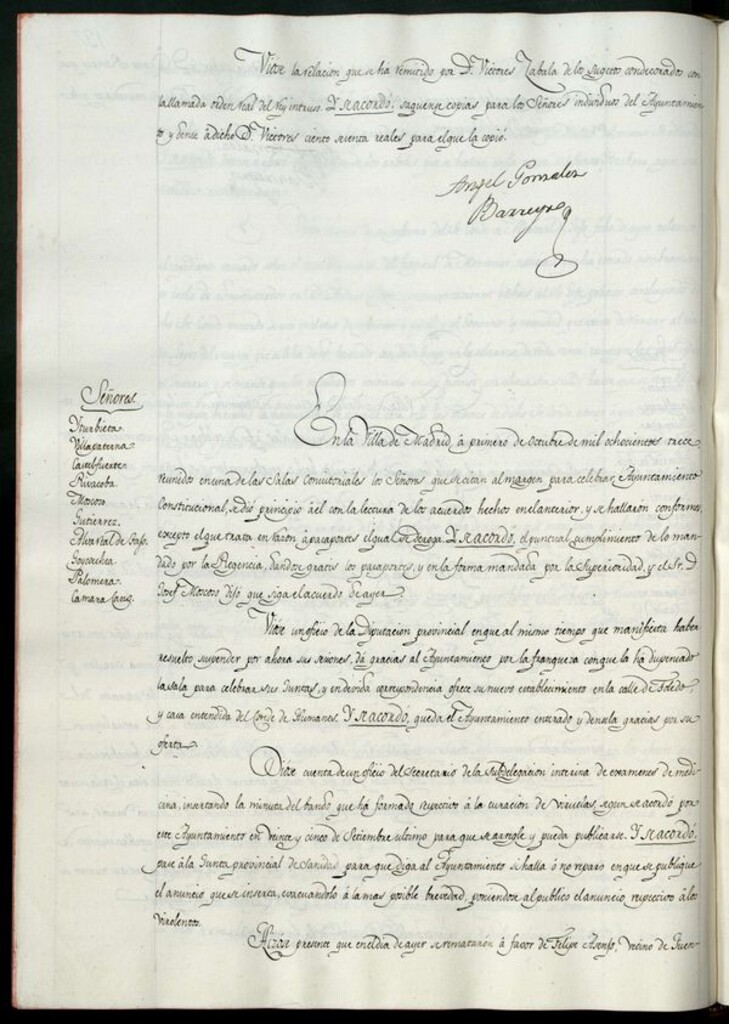 Viose la relacion que se ha remitido por D. Victores Zabala de los sugetos condecorados con
la llamada orden real del Rey intruso. Y se acordó: saquense copias para los Señores individuos del Ayuntamien-
to y dense á dicho D. Victores ciento sesenta reales para el que la copió.
Angel Gonzalez
Barreyro
Señores
Yturbieta
Villapaterna
Castelfuerte
Rivacoba
Moscoso
Gutierrez
Goycochea
Palomera
Camara Sanz
En la Villa de Madrid, á primero de Octubre de mil ochocientos trece,
reunidos en una de las Salas Consistoriales los Señores que se citan al margen para celebrar Ayuntamiento
Constitucional, se dió principio á él con la lectura de los acuerdos hechos en el anterior, y se hallaron conformes,
excepto el que trata en razon á pasaportes el qual se deroga. Y se acordó, el puntual cumplimiento de lo man-
dado por la Regencia, dandose gratis los pasaportes, y en la forma mandada por la Superioridad, y el Sr. D.
Josef Moscoso dijo que siga el acuerdo de ayer.
Viose un oficio de la Diputacion provincial en que al mismo tiempo que manifiesta haber
resuelto suspender por ahora sus sesiones, dá gracias al Ayuntamiento por la franqueza con que la ha dispensado
la sala para celebrar sus Juntas, y en devida correspondencia ofrece su nuevo establecimiento en la calle de Toledo,
y casa entendida del Conde de Humanes. Y se acordó, queda el Ayuntamiento enterado y densela gracias por su
oferta.
Diose cuenta de un oficio del Secretario de la Subdelegacion interina de examenes de medi-
cina, insertando la minuta del bando que ha formado respectivo á la curacion de Viruelas, segun se acordó por
este Ayuntamiento en veinte y cinco de Setiembre ultimo para que se arregle y pueda publicarse. Y se acordó,
pase á la Junta provincial de Sanidad para que diga al Ayuntamiento si halla ó no reparo en que se publique
el anuncio que se inserta, evacuandolo á la mas posible brevedad, poniendose al publico el anuncio respectivo á los
virolentos.
Hizose presente que en el dia de ayer se remataron á favor de Felipe Asenjo, vecino de Fuen-